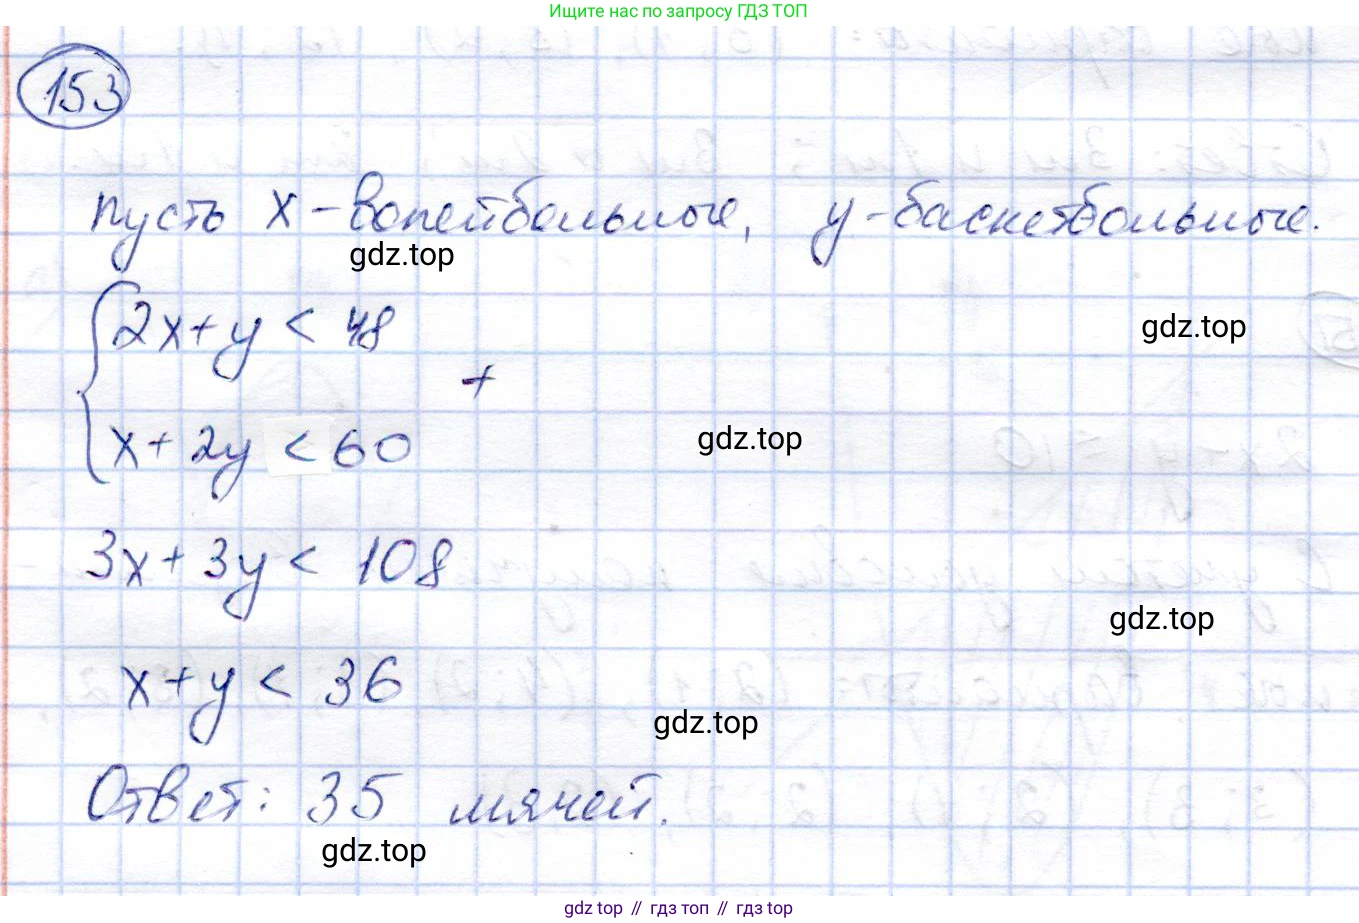 Ищите нас по запросу ГДЗ ТОП
153
пусть x - волейбольные, y - баскетбольные.
gdz.top
2x + y < 48
gdz.top
+
x + 2y < 60
gdz.top
3x + 3y < 108
gdz.top
x + y < 36
gdz.top
Ответ: 35 мячей.
gdz.top
gdz top // гдз топ // gdz top